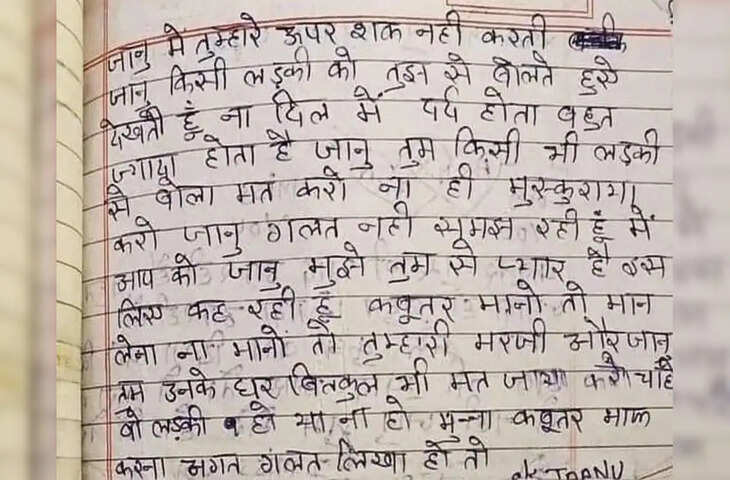 जानु में तुम्हारे ऊपर शक नही करती
जानु किसी लड़की को तुझ से बोलते हुये
देखती हूं ना दिल में दर्द होता बहुत
ज्यादा होता है जानु तुम किसी भी लड़की
से बोला मत करो ना ही मुस्कुराया
करो जानु गलत नही समझ रही हूं में
आप को जानु मुझे तुम से प्यार है इस
लिए कह रही हूं कबूतर मानो तो मान
लेना ना मानो तो तुम्हारी मरजी और जानु
तुम उनके घर बिलकुल भी मत जाया करो चाहे
वो लड़की हो या ना हो मुन्ना कबूतर माफ
करना अगत गलत लिखा हो तो
ok JAANU